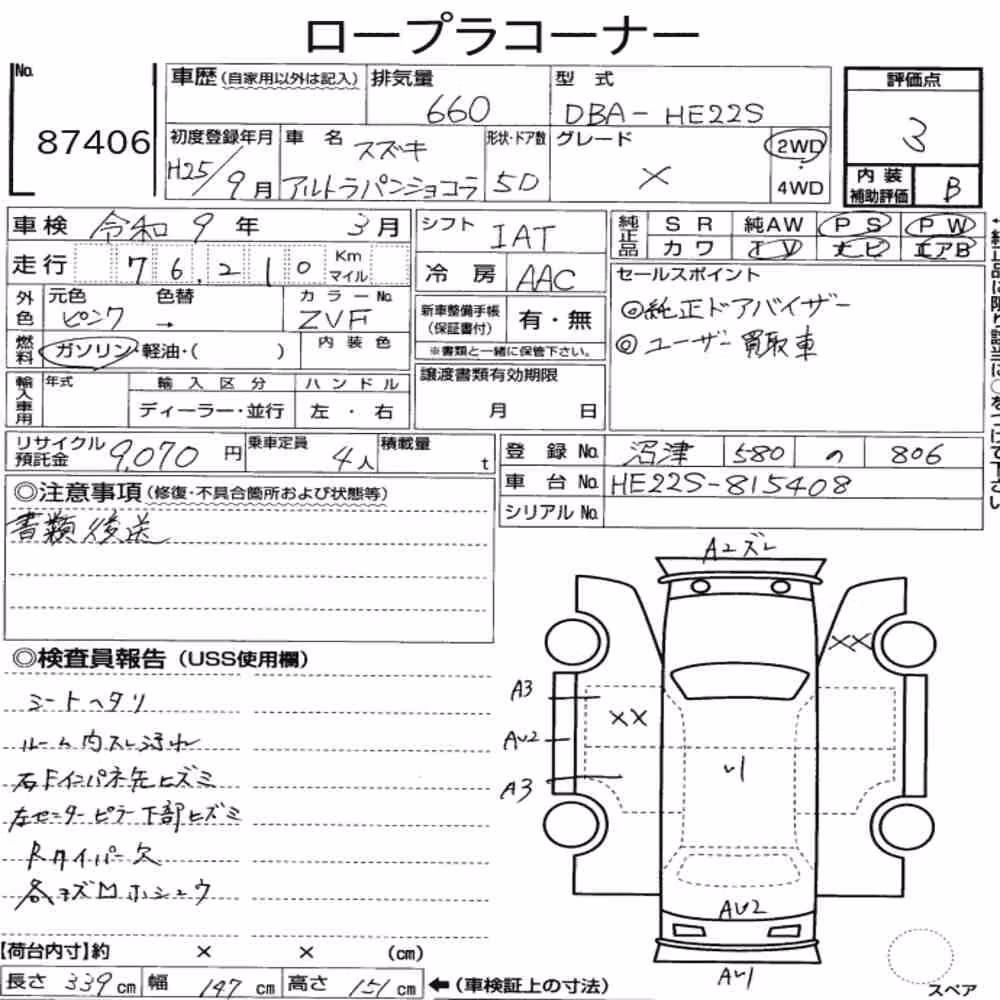 ロープラコーナー
No.
87406
車歴(自家用以外は記入)
排気量
660
型式
DBA-HE22S
評価点
3
初度登録年月
H25/9月
車名
スズキ
アルトラパンショコラ
形状・ドア数
5D
グレード
X
2WD
4WD
内装
補助評価
B
車検 令和 9年 3月
走行 76,210 Km マイル
シフト IAT
冷房 AAC
純正品 SR 純AW PS PW
カワ TV ナビ エアB
外色 元色 ピンク 色替 → カラーNo. ZVF
燃料 ガソリン・軽油・( ) 内装色
新車整備手帳
(保証書付)
有・無
※書類と一緒に保管下さい。
セールスポイント
◎純正ドアバイザー
◎ユーザー買取車
輸入車用 年式 輸入区分 ハンドル
ディーラー・並行 左・右
譲渡書類有効期限
月 日
リサイクル
預託金
9,070円
乗車定員 4人
積載量 t
登録No. 沼津 580 の 806
車台No. HE22S-815408
シリアルNo.
◎注意事項(修復・不具合箇所および状態等)
書類後送
◎検査員報告(USS使用欄)
シートヘタリ
ルーム内スレ汚れ
右Fインパネ先ヒズミ
左センターピラー下部ヒズミ
Rワイパー欠
各キズMホシュウ
A2ズレ
XX
A3
XX
AU2
A3
U1
AU2
AU1
【荷台内寸】約 × × (cm)
長さ 339cm 幅 147cm 高さ 151cm ←(車検証上の寸法)
スペア